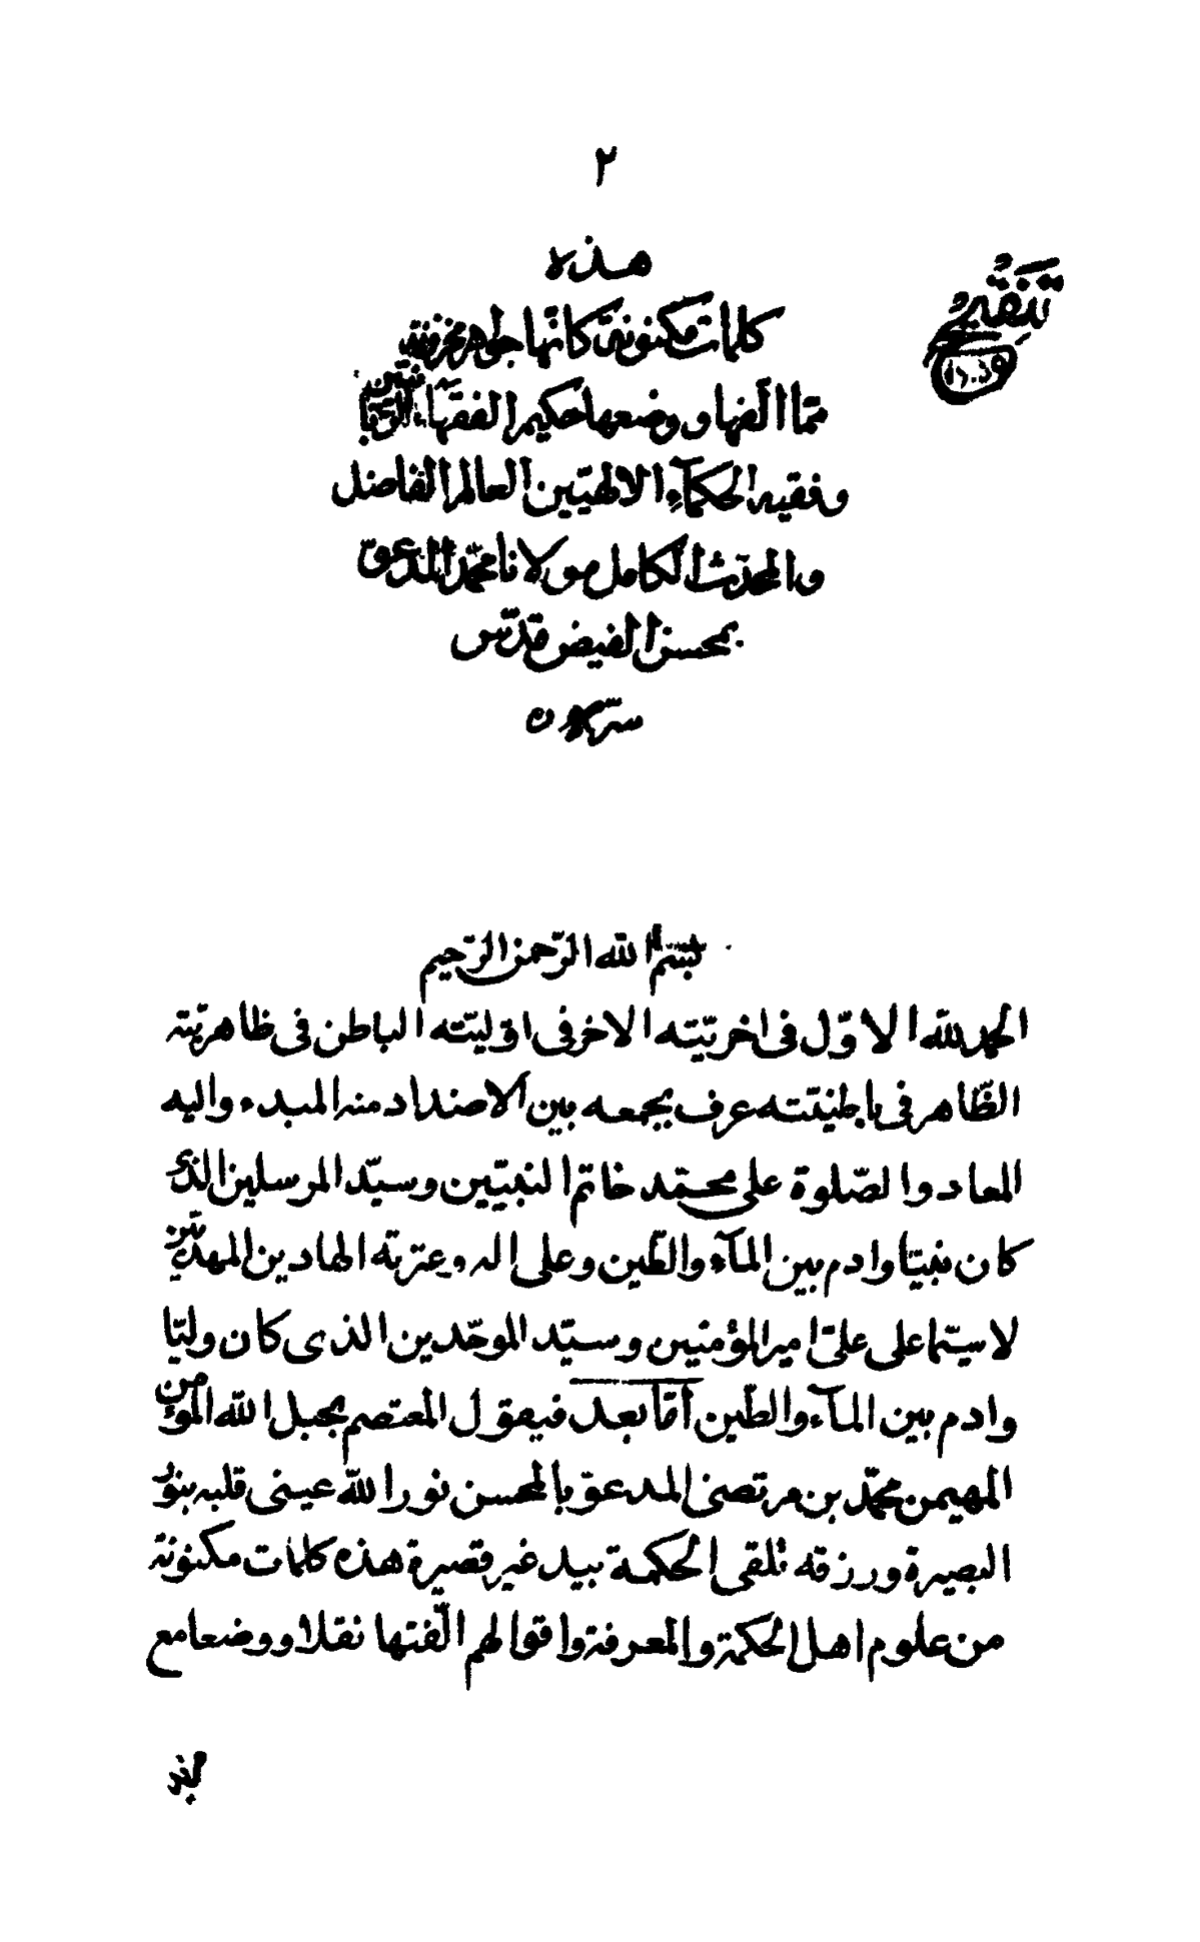 ٢
هذه
كلمات مكنونة كانّها جواهر مخزونة
ممّا الّفها و وضعها حكيم الفقهآء الربّانيّين
و فقيه الحكمآء الالهيّين العالم الفاضل
والمحدّث الكامل مولانا محمّد المدعوّ
بمحسن الفيض قدّس
سرّه
تنقيح
بسم الله الرّحمن الرّحيم
الحمد لله الاوّل فى اخريّته الاخر فى اوّليّته الباطن فى ظاهريّته
الظّاهر فى باطنيّته عرف بجمعه بين الاضداد منه المبدء واليه
المعاد والصّلوة على محمّد خاتم النبيّين وسيّد المرسلين الذى
كان نبيّا وادم بين المآء والطّين وعلى اله وعترته الهادين المهديّين
لا سيّما على علىّ امير المؤمنين وسيّد الموحّدين الذى كان وليّا
وادم بين المآء والطّين امّا بعد فيقول المعتصم بحبل الله المؤمن
المهيمن محمّد بن مرتضى المدعوّ بالمحسن نور الله عينى قلبه بنور
البصيرة ورزقه تلقى الحكمة بيد غير قصيرة هذه كلمات مكنونة
من علوم اهل الحكمة والمعرفة واقوالهم الّفتها نقلا ووضعا مع